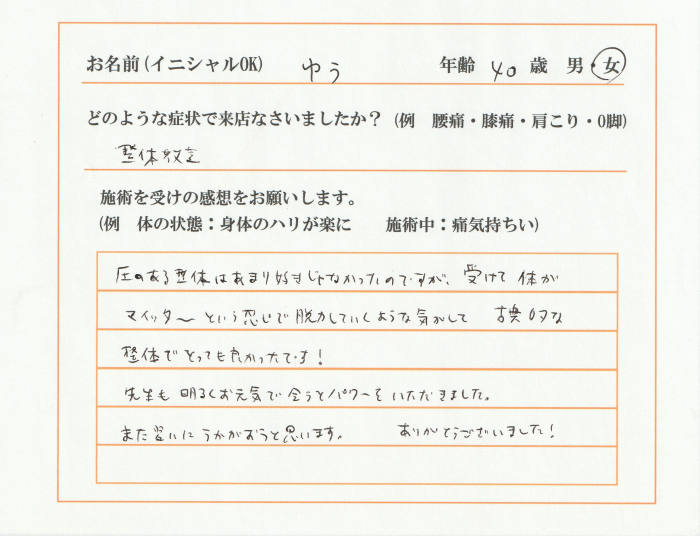 お名前(イニシャルOK) ゆう 年齢 40 歳 男・女
どのような症状で来店なさいましたか？(例 腰痛・膝痛・肩こり・O脚)
整体
施術を受けの感想をお願いします。
(例 体の状態：身体のハリが楽に 施術中：痛気持ちい)
圧のある整体はあまり好きじゃなかったのですが、受けて体が
マイッタ〜という感じで脱力していくような気がして
整体でとっても良かったです！
先生も明るくお元気で会うとパワーをいただきました。
また にうかがおうと思います。 ありがとうございました！